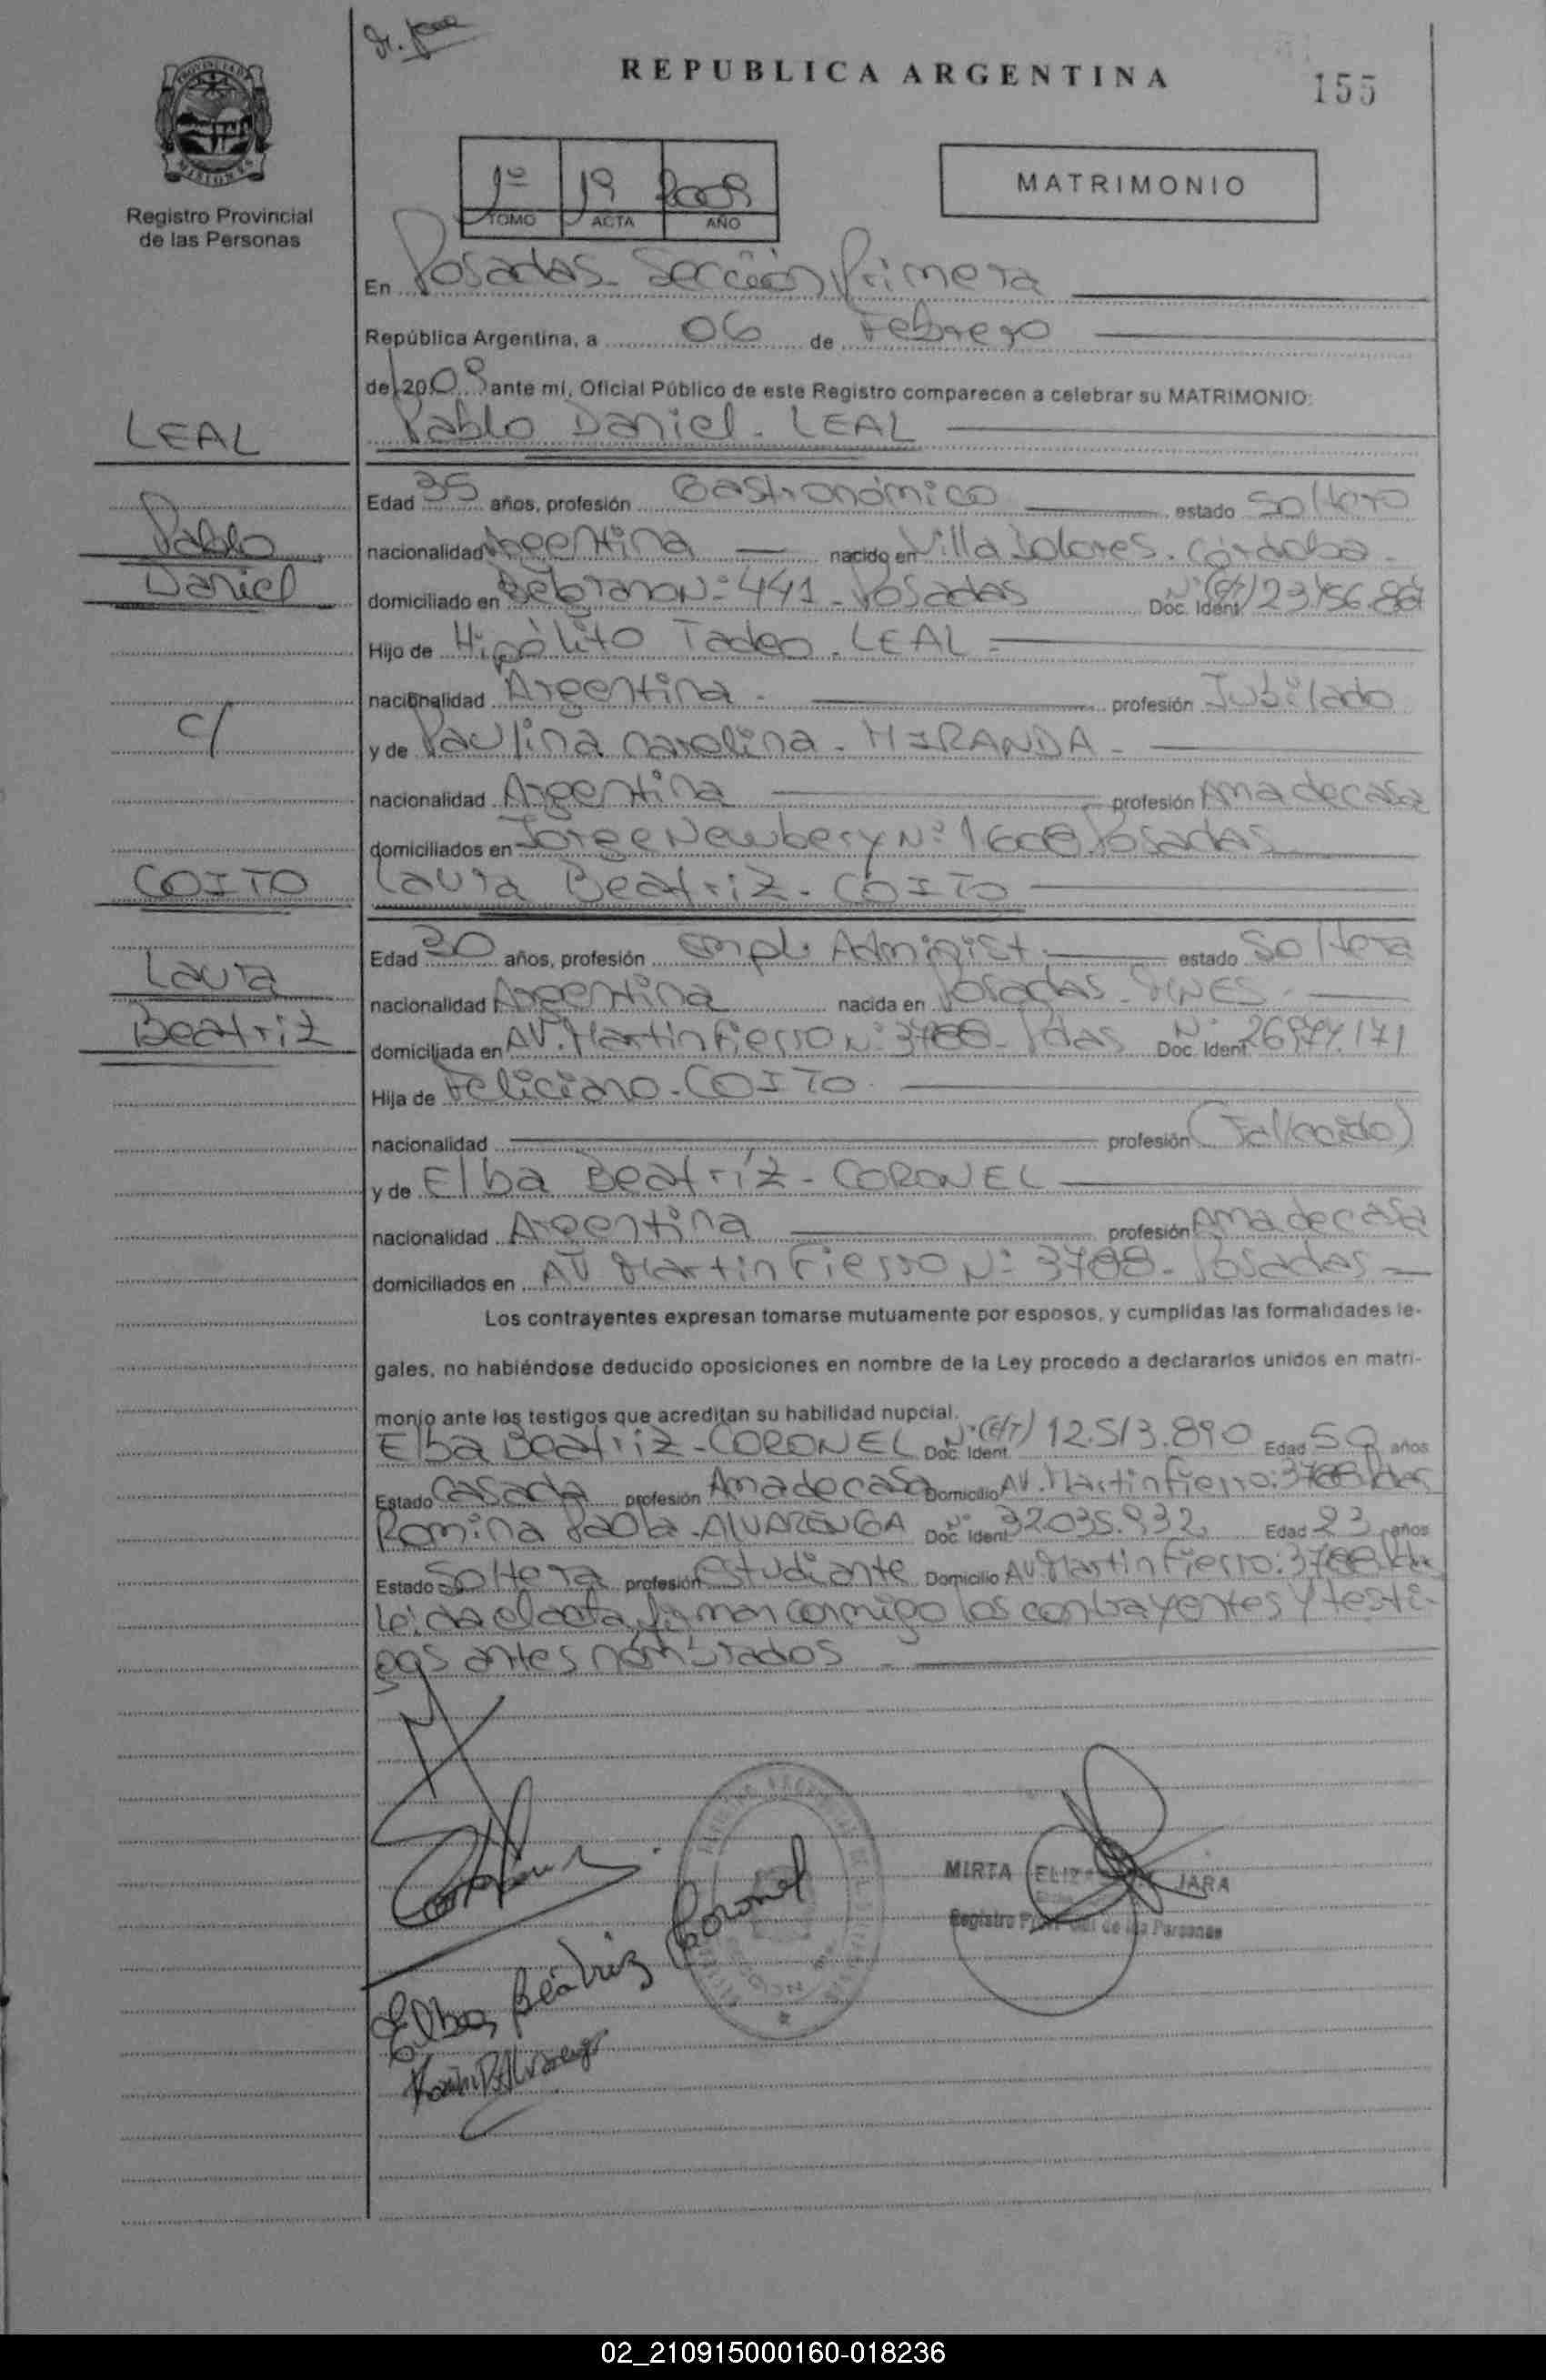 REPUBLICA ARGENTINA
155
Registro Provincial
de las Personas
1º 19 2009
TOMO ACTA AÑO
MATRIMONIO
En Posadas - Sección Primera
República Argentina, a 06 de Febrero
de 2009 ante mí, Oficial Público de este Registro comparecen a celebrar su MATRIMONIO:
LEAL
Pablo Daniel - LEAL
Edad 35 años, profesión Gastronómico estado Soltero
Pablo
nacionalidad Argentina nacido en Villa Dolores - Córdoba -
Daniel
domiciliado en Belgrano Nº 441 - Posadas Doc. Ident.
Hijo de Hipólito Tadeo - LEAL
nacionalidad Argentina - profesión Jubilado
c/
y de Paulina Carolina - MIRANDA -
nacionalidad Argentina profesión Ama de casa
domiciliados en Jorge Newbery Nº 1608 Posadas
COITO
Laura Beatriz - COITO
Edad 30 años, profesión Empl. Administ. estado Soltera
Laura
nacionalidad Argentina nacida en Posadas - Mnes -
Beatriz
domiciliada en AV. Martin Fierro Nº 3788 - Pdas Doc. Ident. Nº
Hija de Feliciano - COITO -
nacionalidad profesión (Fallecido)
y de Elba Beatríz - CORONEL
nacionalidad Argentina profesión Ama de casa
domiciliados en AV Martin Fierro Nº 3788 - Posadas
Los contrayentes expresan tomarse mutuamente por esposos, y cumplidas las formalidades le-
gales, no habiéndose deducido oposiciones en nombre de la Ley procedo a declararlos unidos en matri-
monio ante los testigos que acreditan su habilidad nupcial.
Elba Beatriz - CORONEL Doc. Ident. Nº (E/T) 12.513.890 Edad 50 años
Estado Casada profesión Ama de casa Domicilio AV. Martin Fierro: 3788 Pdas
Romina Paola - ALVARENGA Doc. Ident. Nº 32.035.932 Edad 23 años
Estado Soltera profesión Estudiante Domicilio AV Martin Fierro: 3788 Pdas
Leída el acta firman conmigo los contrayentes y testi-
gos antes nombrados -
MIRTA JARA
Registro de las Personas
Elba Beatriz Coronel
02_210915000160-018236